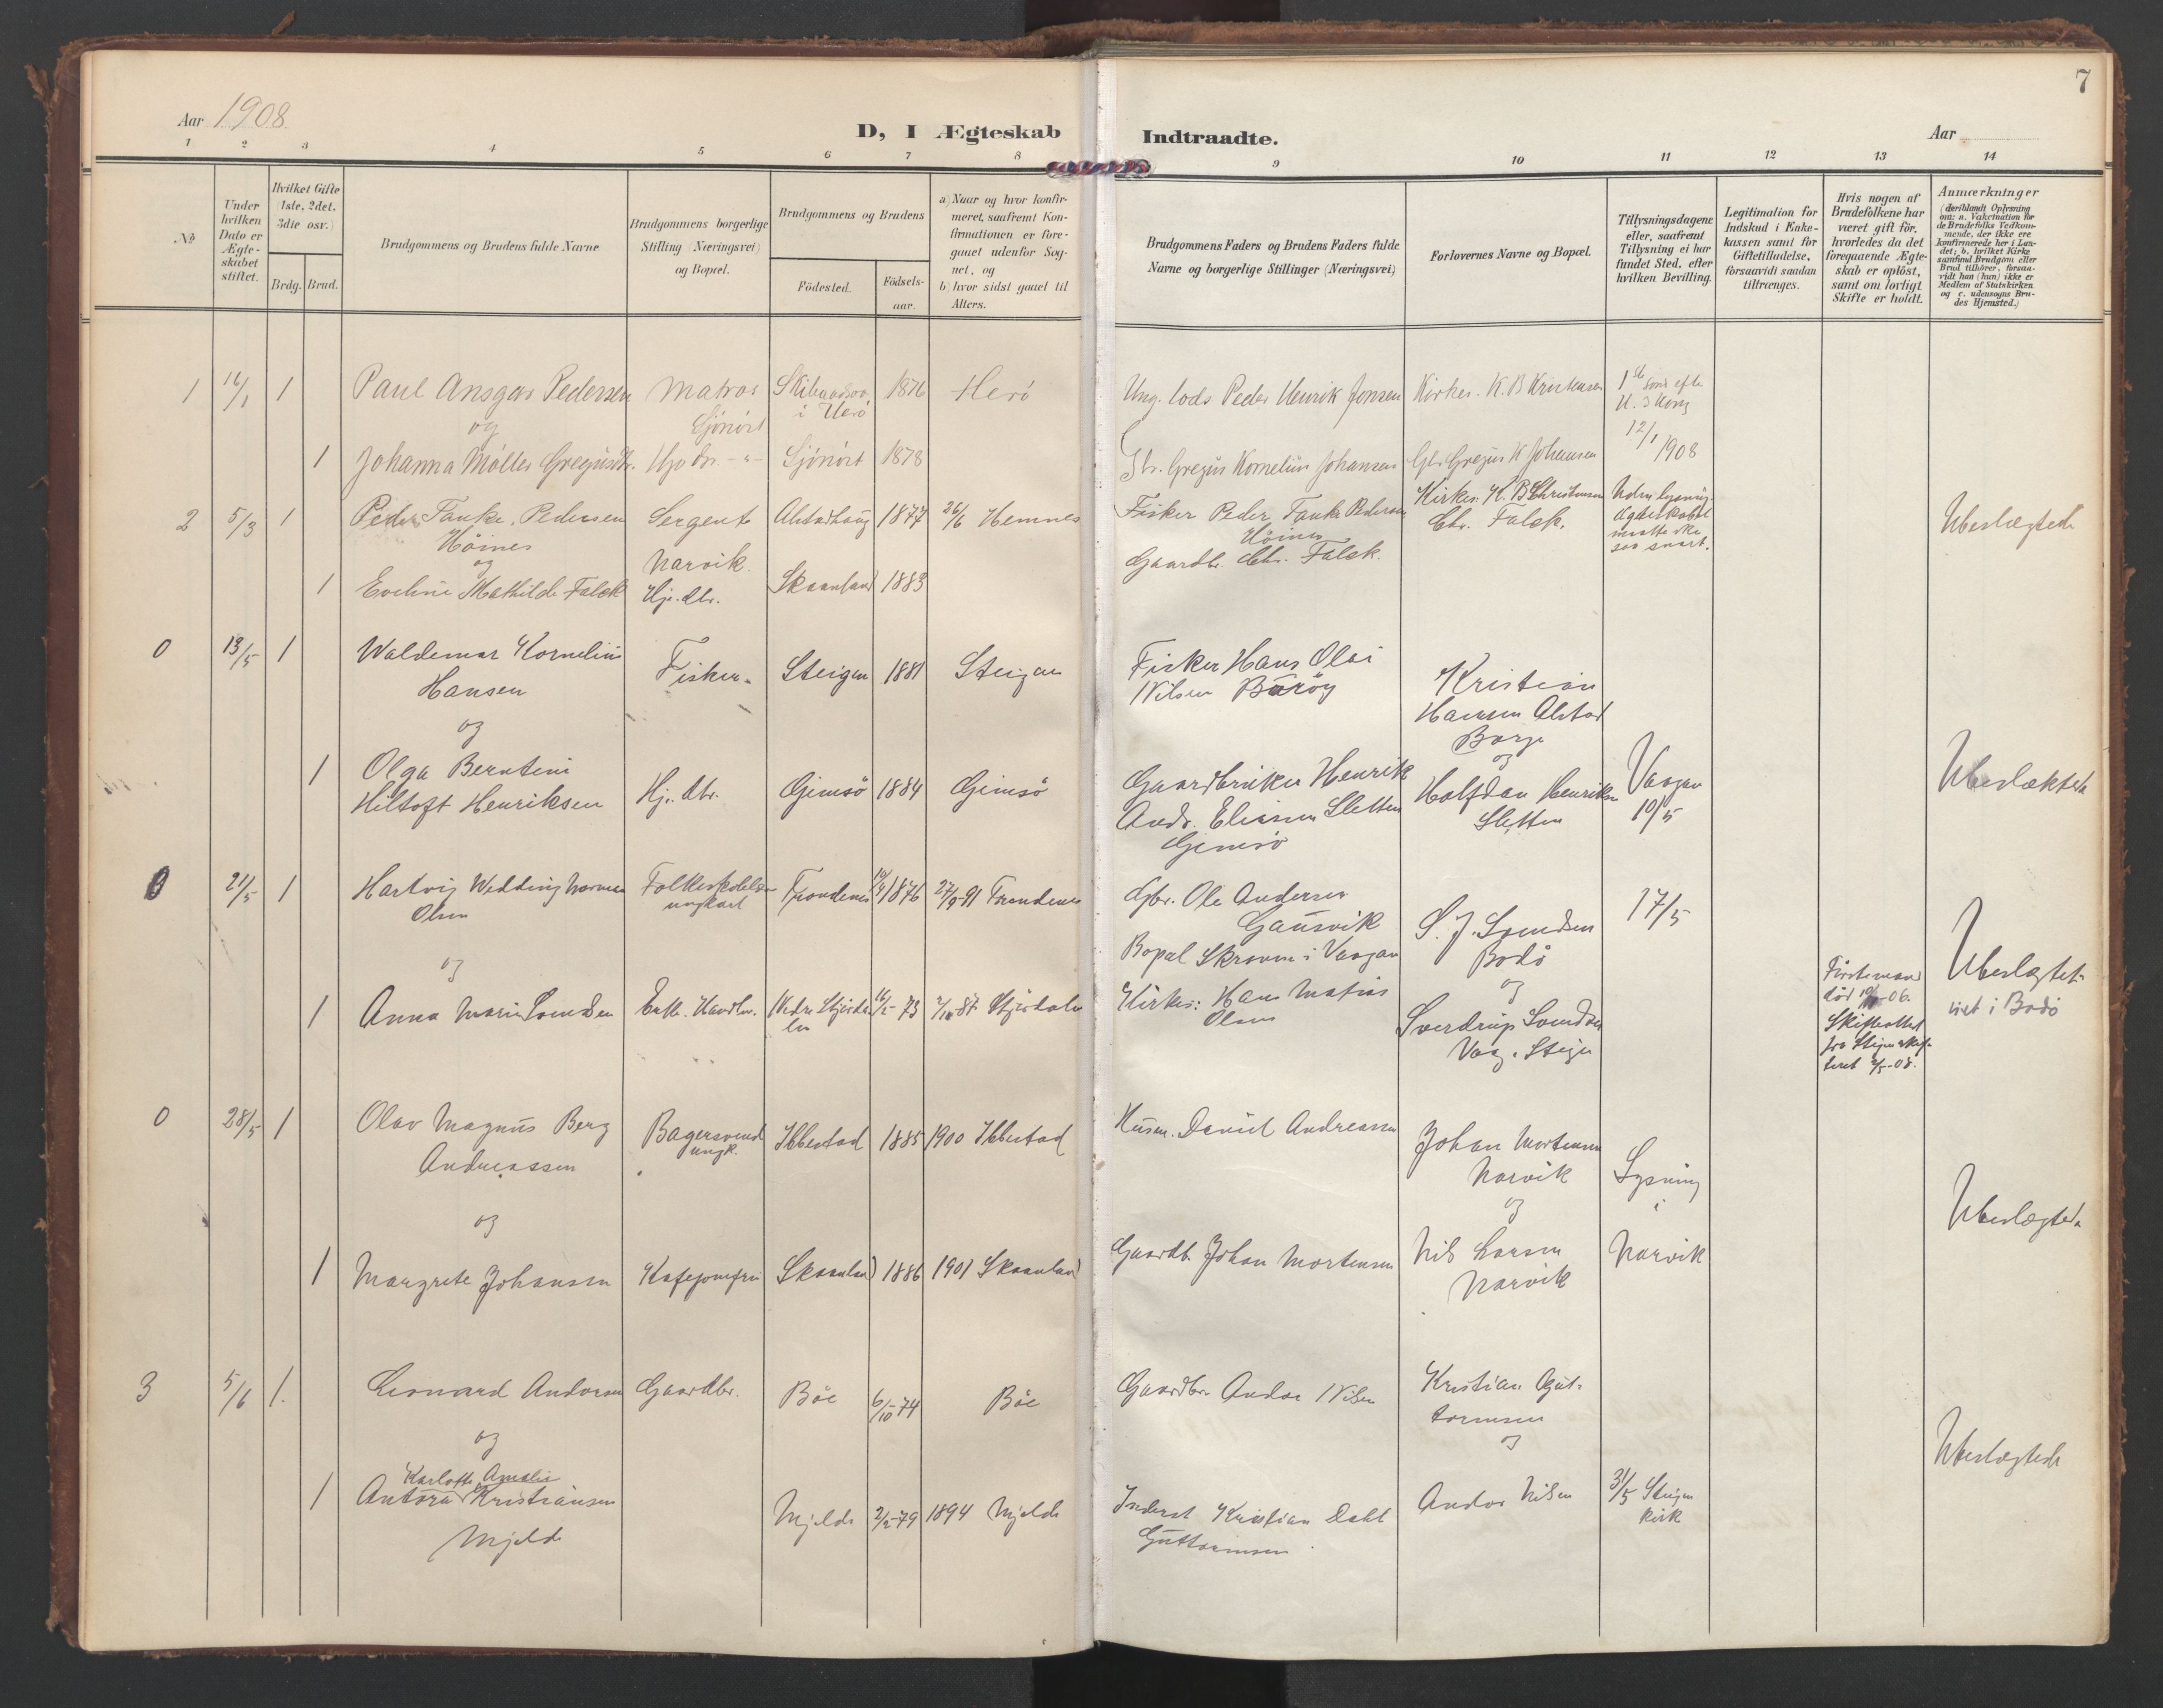 Aar 1908
D, I Ægteskab
1 2 3 4 5 6 7 8
№
Under hvilken Dato er Ægteskabet stiftet.
Hvilket Gifte (1ste, 2det, 3die osv.)
Brdg. Brud.
Brudgommens og Brudens fulde Navne
Brudgommens borgerlige Stilling (Næringsvei) og Bopæl.
Brudgommens og Brudens
Födested. Födsels-aar.
a) Naar og hvor konfirmeret, saafremt Konfirmationen er foregaaet udenfor Sognet, og
b) hvor sidst gaaet til Alters.
1 1 Paul Ansgar Pedersen Matros i Herö 1876 Herö
og Sjönört
1 Johanna Möller Sjönört 1878
2 5/3 1 Peder Tanke Pedersen Sergent Alstadhaug 1877 26/6 Hemnes
Höines Narvik
og
1 Eveline Mathilde Falck Hj. dtr. Skaanland 1883
0 13/5 1 Waldemar Kornelius Fisker Steigen 1881 Steigen
Hansen
og
1 Olga Berntini
Hiltoft Henriksen Hj. dtr. Gimsö 1884 Gimsö
21/5 1 Hartvig Wedding Norman Trondenes 1876 27/9-91 Trondenes
Olsen ungkarl
og
1 Anna Marie Svendsen Enke. Handlr. 73
0 28/5 1 Olav Magnus Berg Bagersvend Ibbestad 1885 1900 Ibbestad
Andreassen ungk.
og
1 Margrete Johansen Kafejomfru Skaanland 1886 1901 Skaanland
3 5/6 1. Leonard Andorsen Gaardbr. Böe 6/10-74 Böe
og
Karlotte Amalie
1 Antora Kristiansen Mjelde 2/2-79 1894 Mjelde
Mjelde
7
Indtraadte.
Aar
9 10 11 12 13 14
Brudgommens Faders og Brudens Faders fulde Navne og borgerlige Stillinger (Næringsvei)
Forlovernes Navne og Bopæl.
Tillysningsdagene eller, saafremt Tillysning ei har fundet Sted, efter hvilken Bevilling.
Legitimation for Indskud i Enkekassen samt for Giftetilladelse, forsaavidt saadan tiltrænges.
Hvis nogen af Brudefolkene har været gift för, hvorledes da det foregaaende Ægteskab er oplöst, samt om lovligt Skifte er holdt.
Anmærkninger
(deriblandt Oplysning om: a. Vakcination for de Brudefolks Vedkommende, der ikke ere konfirmerede her i Landet; b. hvilket Kirkesamfund Brudgom eller Brud tilhörer, forsaavidt han (hun) ikke er Medlem af Statskirken og c. udensogns Brudes Hjemsted.)
Ung. lods Peder Henrik Jonsen Kirkes. K. B Kristensen
12/1 1908
Gbr. Gregus Kornelius Johansen Gbr Gregus K Johansen
Fisker Peder Tanke Pedersen Kirkes. K. B Christensen Uden lysning.
Höines Chr. Falck. Ægteskabet
Gaardbr. Chr. Falck. maatte ske
saa snart.
Ubeslægtede
Fisker Hans Olai Kristian
Nilsen Baröy Hansen Alstad
Borge
og
Gaardbruker Henrik Halfdan Henriksen Vaagan
Andr. Eliasen Sletten Sletten 10/5
Gimsö
Ubeslæktede
Gbr. Ole Andersen
Gausvik S. J. Svendsen 17/5
Bopæl Skroven i Vaagan Bodö
og
Kirkes: Hans Matias
Olsen Sverdrup Svendsen
Förstemand
död
Ubeslægtet
viet i Bodö
Husm. Daniel Andreassen Johan Mortensen
Narvik Lysning
og i
Gaardb. Johan Mortensen Nils Larsen Narvik
Narvik
Ubeslægtede
Gaardbr. Andor Nilsen Kristian Gut-
tormsen
og
Inderst Kristian Dahl Andor Nilsen 31/5 Steigen
Guttormsen kirk
Ubeslægtede